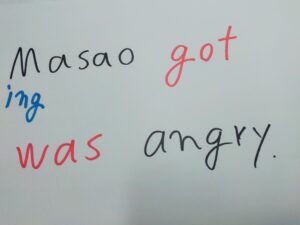 Masao got
ing
was angry.